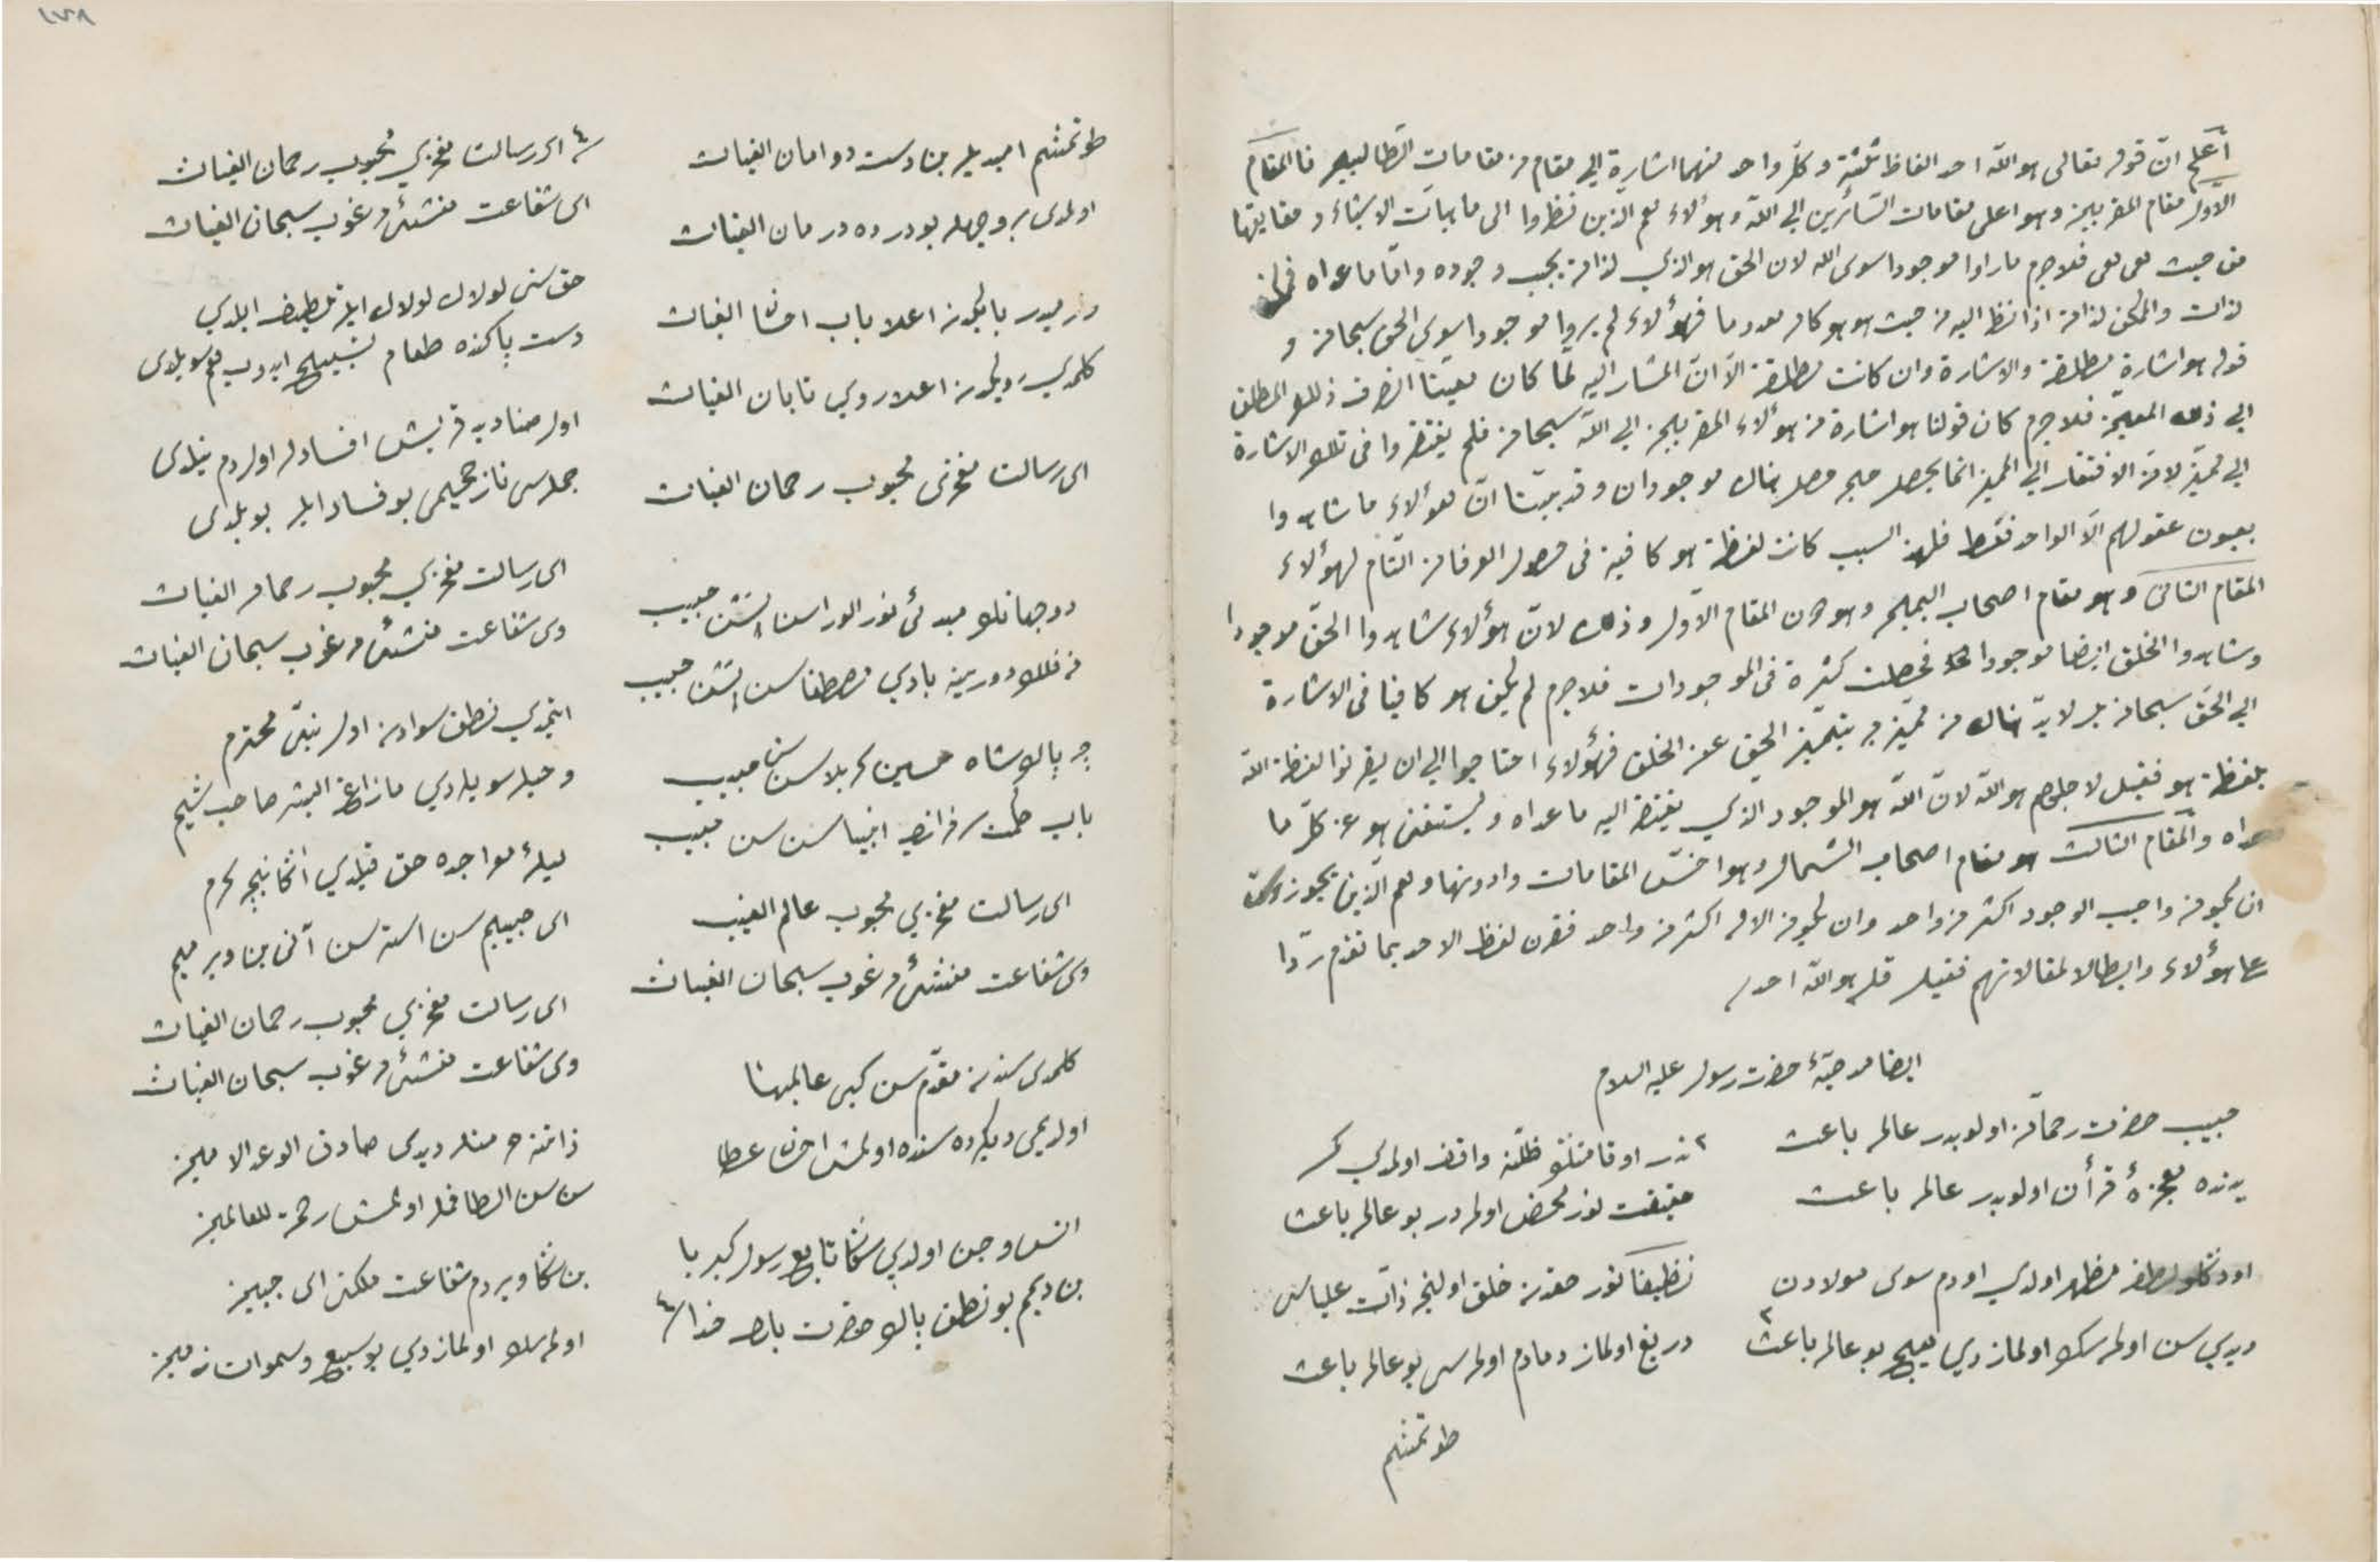 اعلم ان قوله تعالى هو الله احد الفاظ ثلثة و كل واحد منهما اشارة الى مقام من مقامات الطالبين فالمقام
الاول مقام المقربين وهو اعلى مقامات السائرين الى الله وهؤلاء هم الذين نظروا الى ماهيات الاشياء و حقايقها
من حيث هى هى فلاجرم ما راوا موجودا سوى الله لان الحق هو الذي لذاته يجب وجوده واما ما عداه فممكن
لذاته والممكن لذاته اذا نظر اليه من حيث هو هو كان معدوما فهؤلاء لم يروا موجودا سوى الحق سبحانه و
قوله هو اشارة مطلقة والاشارة وان كانت مطلقة الا ان المشار اليه لما كان معينا انصرف ذلك المطلق
الى ذلك المعين فلاجرم كان قولنا هو اشارة من هؤلاء المقربين الى الله سبحانه فلم يفتقروا فى تلك الاشارة
الى مميز لان الافتقار الى المميز انما يحصل حين حصل هناك موجودان وقد بينا ان هؤلاء ما شاهدوا
بعيون عقولهم الا الواحد فقط فلهذا السبب كانت لفظة هو كافية فى حصول العرفان التام لهؤلاء
المقام الثانى وهو مقام اصحاب اليمين وهو دون المقام الاول وذلك لان هؤلاء شاهدوا الحق موجودا
وشاهدوا الخلق ايضا موجودا فحصلت كثرة فى الموجودات فلاجرم لم يكن هو كافيا فى الاشارة
الى الحق سبحانه بل لابد هناك من مميز به يتميز الحق عن الخلق فهؤلاء احتاجوا الى ان يقرنوا لفظة الله
بلفظة هو فقيل لاجلهم هو الله لان الله هو الموجود الذي يفتقر اليه ما عداه ويستغنى هو عن كل ما
عداه والمقام الثالث هو مقام اصحاب الشمال وهو اخس المقامات وادونها وهم الذين يجوزون
ان يكون واجب الوجود اكثر من واحد وان يكون الاله اكثر من واحد فقرن لفظ الاحد بما تقدم ردا
على هؤلاء وابطالا لمقالاتهم فقيل قل هو الله احد
ايضا مدحيهٔ حضرت رسول عليه السلام
حبيب حضرت رحمان اولوبدر عالمه باعث
يدنده معجزهٔ قرأن اولوبدر عالمه باعث
لطفه مظهر اولدي ادم سوى مولادن
ديدي سن اولمسك اولمازدي هيچ بو عالمه باعث
٢ واقف اولمدي كم
حقيقت نور محض اولمدر بو عالمه باعث
نظيفا نور حقدن خلق اولنجه ذات علياسى
دريغ اولماز دمادم اولمسى بو عالمه باعث
طوتمشم
طوتمشم اميد ايله بن دست دو امان الغياث
اولمدى بر وجهله بو درده درمان الغياث
وارميدر بابكدن اعلا باب احسان الغياث
كلمدي رويكدن اعلا روي تابان الغياث
اى رسالت مفخرى محبوب رحمان الغياث
دوجهانك مبدئى نور الوراسن سن حبيب
نه فلك دورينه بادي مصطفاسن سن حبيب
پاك شاه حسين كربلاسن سن حبيب
باب حكمت سرفراز انبياسن سن حبيب
اى رسالت مفخري محبوب عالم الغيب
وى شفاعت منشئى مرغوب سبحان الغياث
كلمدى سندن مقدم سن كبى عالمپنا
اولديمى ديكرده سنده اولمش احسان عطا
انس وجن اولدي سكا تابع رسول كبريا
بن ديمم بو نطق پاك حضرت بارى خدا ٤
٤ اى رسالت مفخري محبوب رحمان الغياث
اى شفاعت منشئى مرغوب سبحان الغياث
حق سنى لولاك لولاك ايله تلطيف ايلدي
دست پاكنده طعام تسبيح ايدوب هم سويلدى
اول صناديد قريش افساد له اول دم نيلدى
جمله سى نار جحيمى بو فساد ايله بويلدى
اى رسالت مفخري محبوب رحمان الغياث
وى شفاعت منشئى مرغوب سبحان الغياث
ايتمدي نطق سوادن اول نبى محترم
وحيله سويلردي مازاغ البصر صاحب شيم
ليلهٔ معراجده حق قيلدي اكا نيجه كرم
اى حبيبم سن استرسن آنى بن ويرميم
اى رسالت مفخري محبوب رحمان الغياث
وى شفاعت منشئى مرغوب سبحان الغياث
ديدى صادق الوعد الامين
سن سن الطافله اولمش رحمة للعالمين
بن سكا ويردم شفاعت ملكنى اى
اولمسك اولمازدي بو سبع وسموات زمين